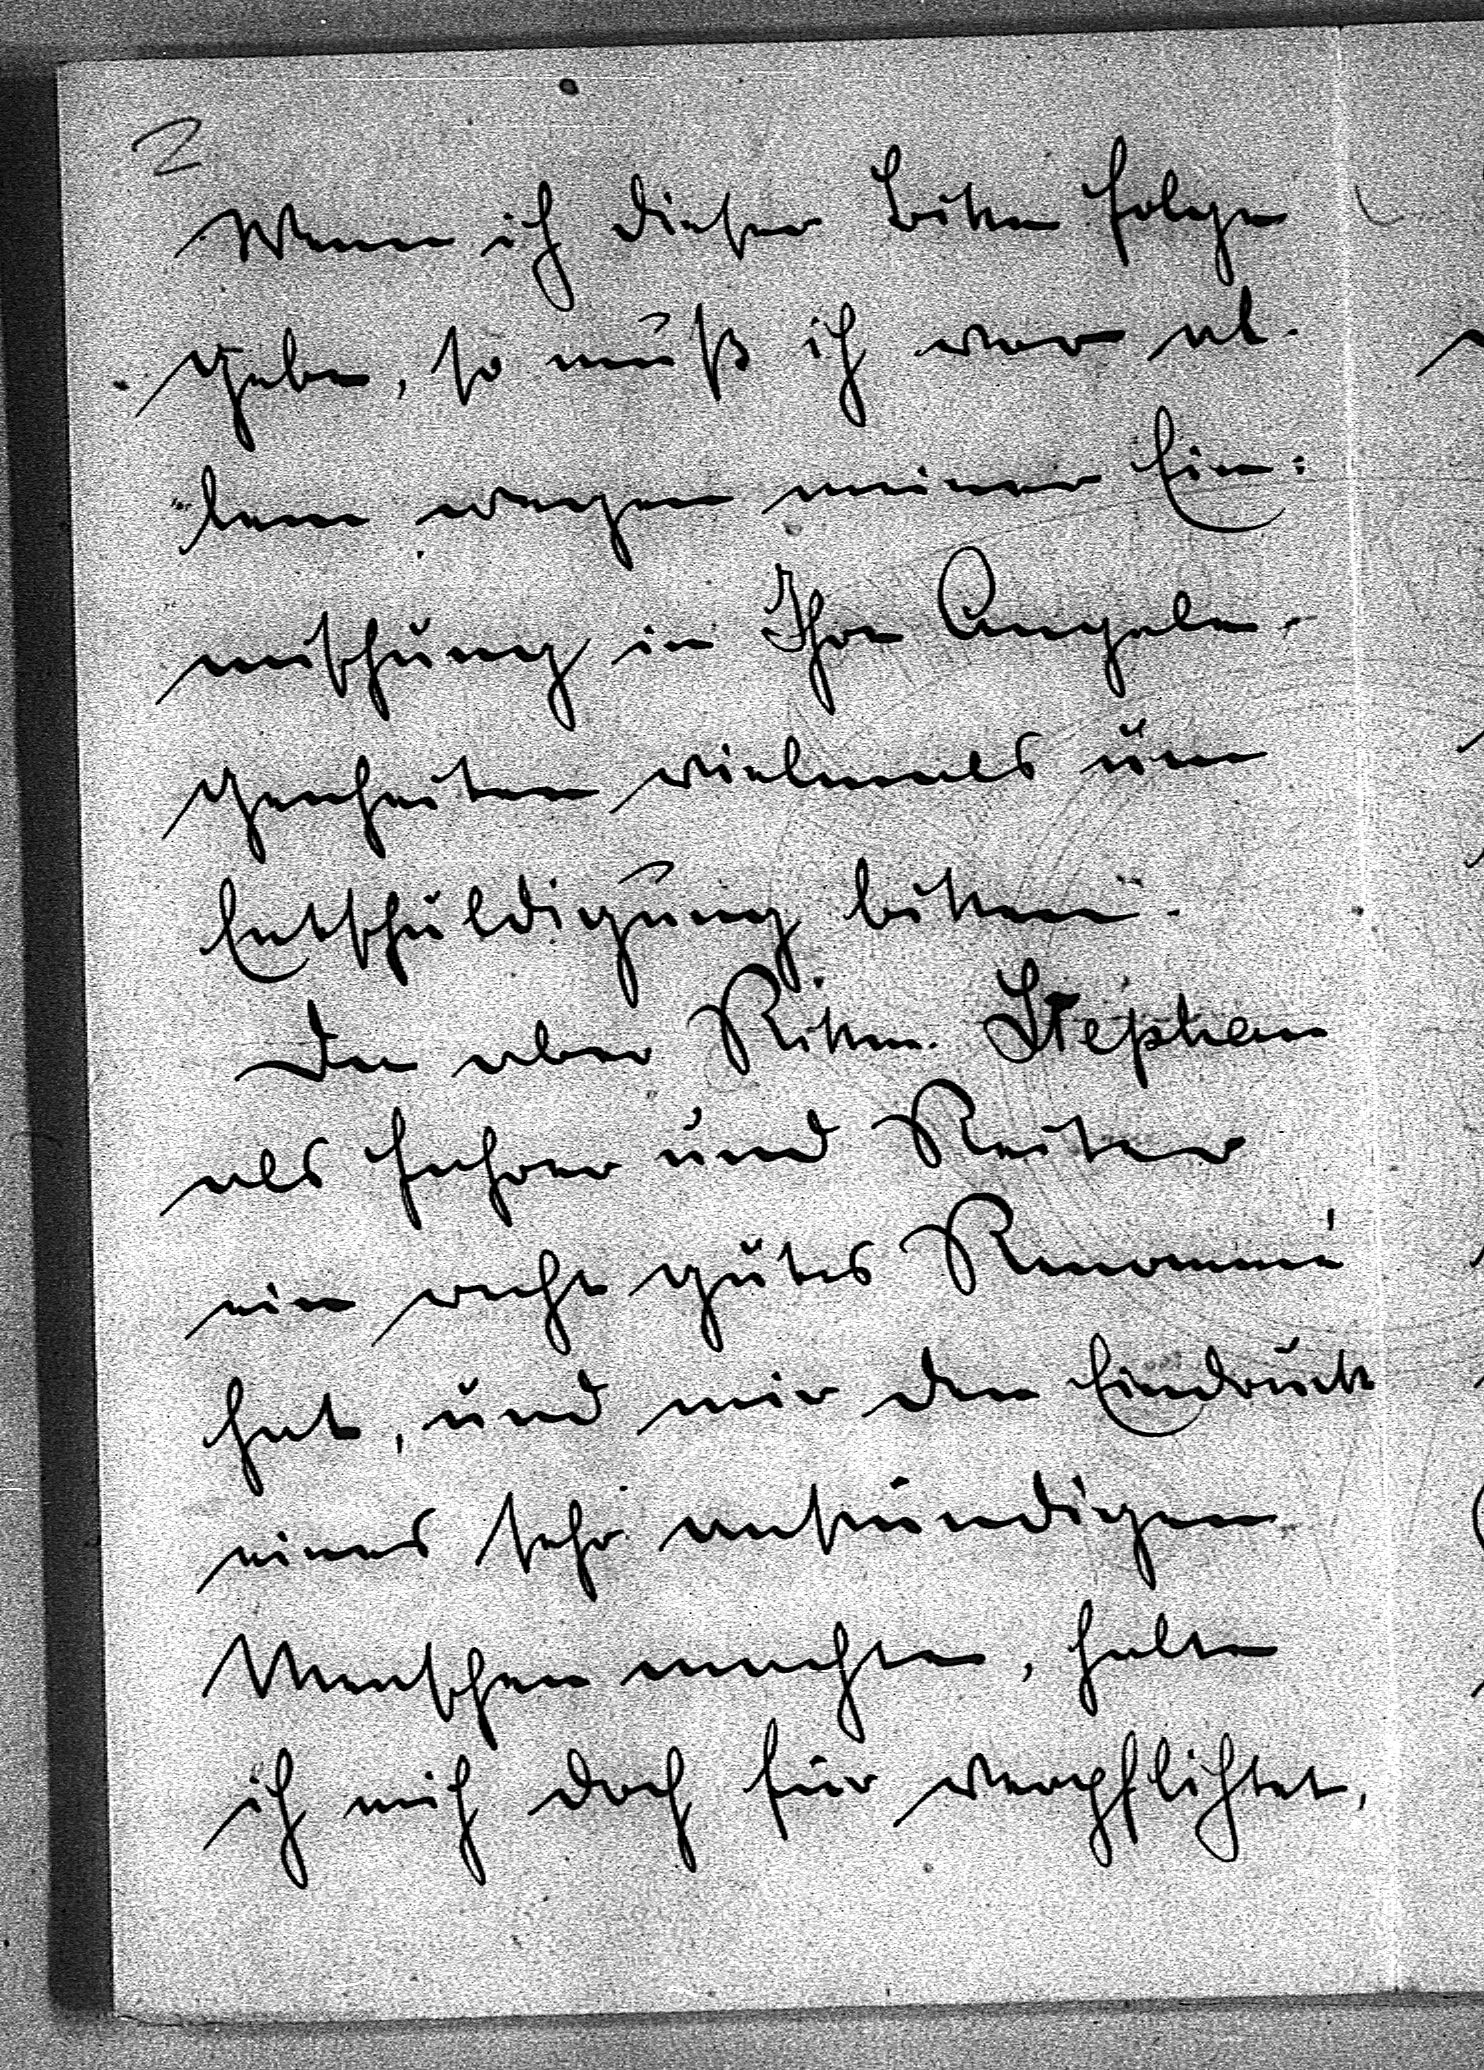 2
Wenn ich dieser Bitte Folge
gebe, so muß ich vor al-
lem wegen meiner Ein:
mischung in Ihre Angele-
genheiten vielmals um
Entschuldigung bitten.
Da aber Rittm. Stephan
als Fahrer und Reiter
ein recht gutes Renommé
hat, und mir den Eindruck
eines sehr anständigen
Menschen machte, halte
ich mich doch für verpflichtet,